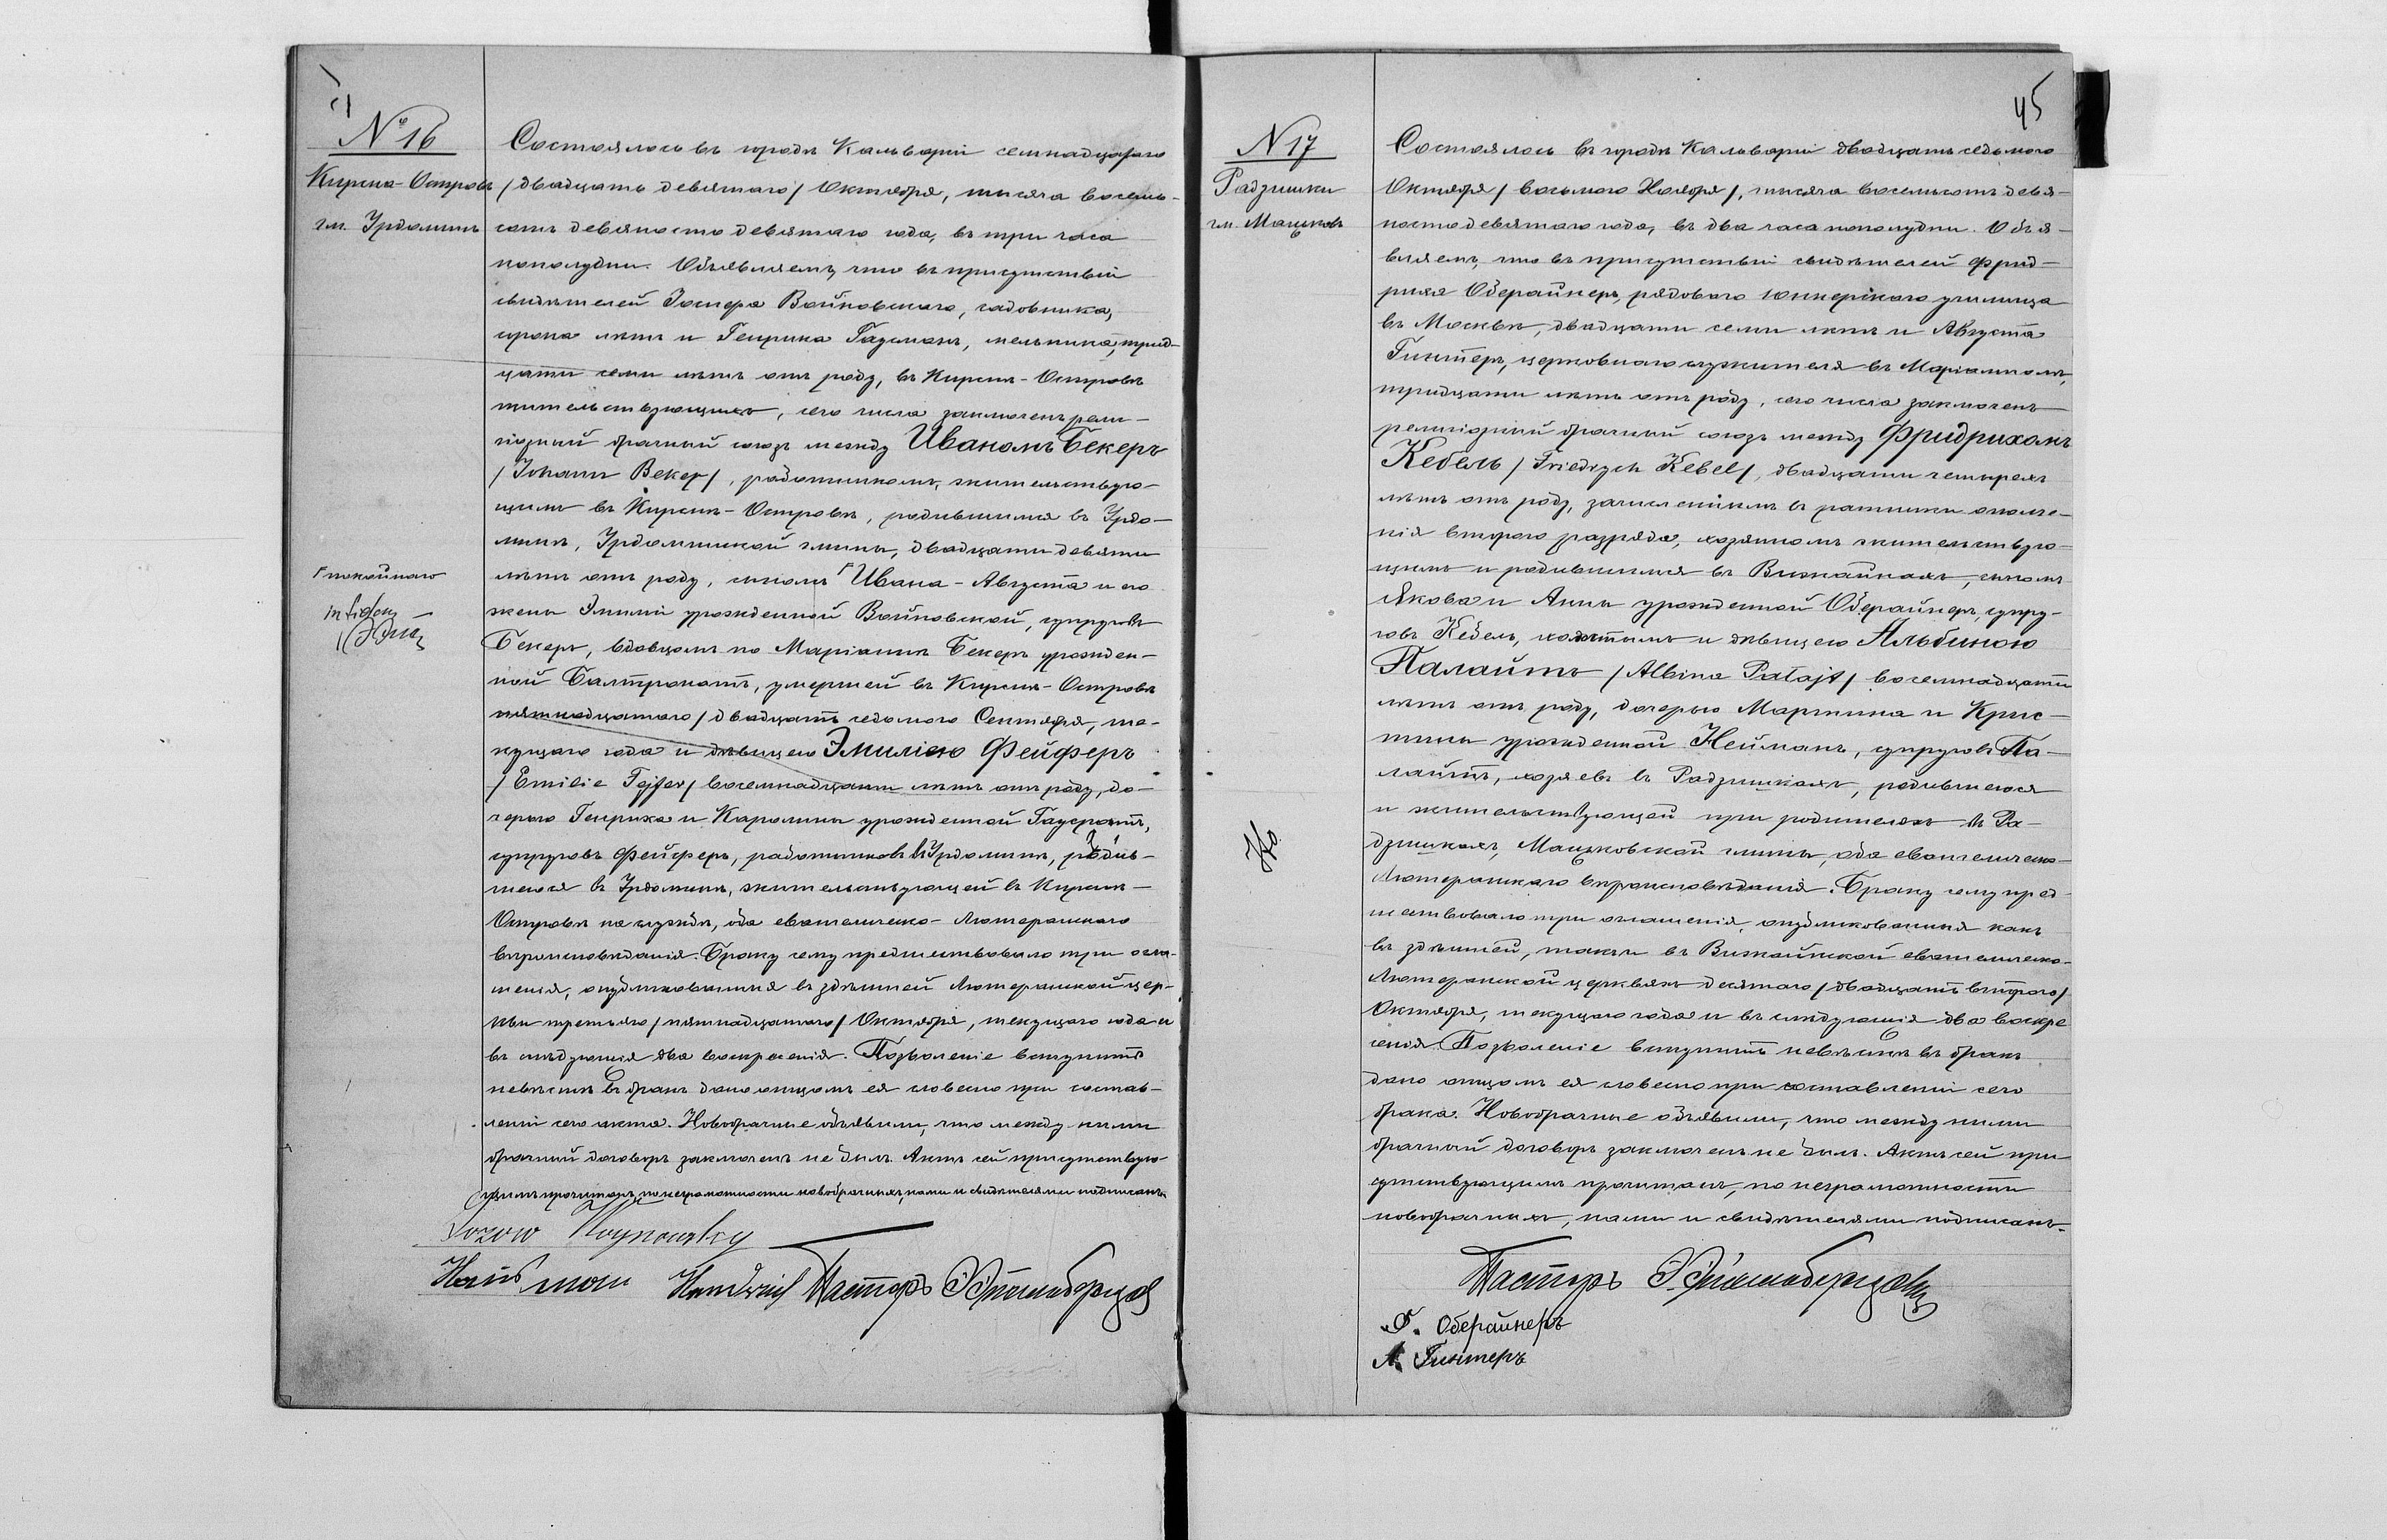 № 16
Кирсна-Островъ
гм. Урдоминъ
Состоялось въ городѣ Кальваріи семнадцатаго
/двадцать девятаго/ Октября, тысяча восемь-
сотъ девяносто девятаго года, въ три часа
пополудни. Объявляемъ, что въ присутствіи
свидѣтелей Войновскаго, садовника,
сорока лѣтъ и Генриха Гаусманъ, мельника, трид-
цати семи лѣтъ отъ роду, въ Кирснѣ-Островѣ
жительствующихъ, сего числа заключенъ рели-
гіозный брачный союзъ между Иваномъ Бекеръ
/Johann Beker/, работникомъ, жительствую-
щимъ въ Кирснѣ-Островѣ, родившимся въ Урдо-
минѣ, Урдоминской гмины, двадцати девяти
лѣтъ отъ роду, сыномъ Г Ивана-Августа и его
Г покойнаго
жены Эмиліи урожденной Войновской, супруговъ
Бекеръ, вдовцомъ по Маріаннѣ Бекеръ урожден-
ной Балтронатъ, умершей въ Кирснѣ-Островѣ
пятнадцатаго /двадцать седьмого Сентября, те-
кущаго года и дѣвицею Эмиліею Фейферъ
/Emilie Fejfer/ восемнадцати лѣтъ отъ роду, до-
черью Генриха и Каролины урожденной
супруговъ Фейферъ, работниковъ въ Урдоминѣ, родив-
шеюся въ Урдоминѣ, жительствующей въ Кирснѣ-
Островѣ на службѣ, оба евангелическо-Лютеранскаго
вѣроисповѣданія. Браку сему предшествовало три огла-
шенія, опубликованныя въ здѣшней Лютеранской цер-
кви третьяго /пятнадцатаго/ Октября, текущаго года и
въ слѣдующія два воскресенія. Позволеніе вступить
невѣстѣ въ бракъ дано отцомъ ея словесно при состав-
леніи сего акта. Новобрачные объявили, что между ними
брачный договоръ заключенъ не былъ. Актъ сей присутствую-
щимъ прочитанъ, по неграмотности новобрачныхъ, нами и свидѣтелями подписанъ.
Woynowsky
Hausman Hendrich Пасторъ
45
N 17
Радзишки
гм. Мацковъ
Состоялось въ городѣ Кальваріи двадцать седьмого
Октября /восьмого Ноября/, тысяча восемьсотъ девя-
носто девятаго года, въ два часа пополудни. Объя-
вляемъ, что въ присутствіи свидѣтелей Фрид-
риха Оберайнеръ, рядового юнкерскаго училища
въ Москвѣ, двадцати семи лѣтъ и Августа
Гинтеръ, церковнаго служителя въ Маріамполѣ,
тридцати лѣтъ отъ роду, сего числа заключенъ
религіозный брачный союзъ между Фридрихомъ
Кебель /Friedrych Kebel/, двадцати четырехъ
лѣтъ отъ роду, зачисленнымъ въ ратники ополче-
нія второго разряда, хозяиномъ жительствую-
щимъ и родившимся въ Вижайнахъ, сыномъ
Якова и Анны урожденной Оберайнеръ, супру-
говъ Кебель, холостымъ и дѣвицею Альбиною
Палайтъ /Albina Palajt/ восемнадцати
лѣтъ отъ роду, дочерью Мартина и Крис-
тины урожденной Нейманъ, супруговъ Па-
лайтъ, хозяевъ въ Радзишкахъ, родившеюся
и жительствующей при родителяхъ въ Ра-
дзишкахъ, Мацковской гмины, оба евангелическо-
Лютеранскаго вѣроисповѣданія. Браку сему пред-
шествовало три оглашенія, опубликованныя какъ
въ здѣшней, такъ и въ Вижайнской евангелическо-
Лютеранской церквахъ десятаго /двадцать второго/
Октября, текущаго года и въ слѣдующія два воскре-
сенія. Позволеніе вступить невѣстѣ въ бракъ
дано отцомъ ея словесно при составленіи сего
брака. Новобрачные объявили, что между ними
брачный договоръ заключенъ не былъ. Актъ сей при-
сутствующимъ прочитанъ, по неграмотности
новобрачныхъ, нами и свидѣтелями подписанъ.
Пасторъ
Ф. Оберайнеръ
А. Гинтеръ